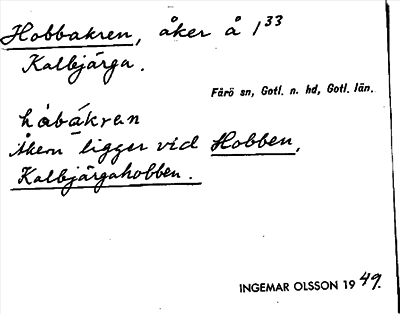 Hobbakren, åker å 1³³
Kalbjärga.
Fårö sn, Gotl. n. hd, Gotl. län.
håbákran
Åkern ligger vid Hobben,
Kalbjärgahobben.
INGEMAR OLSSON 1949.